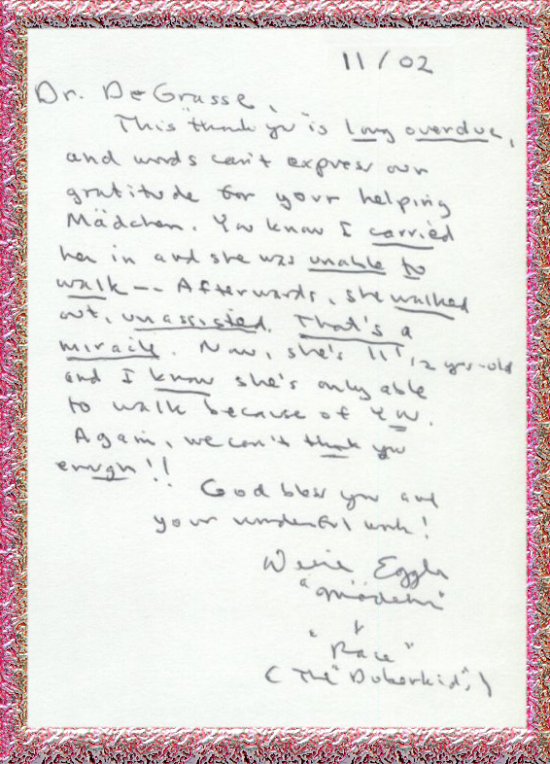 11/02
Dr. De Grasse,
This "thank you" is long overdue,
and words can't express our
gratitude for your helping
Mädchen. You know I carried
her in and she was unable to
walk -- Afterwards, she walked
out, unassisted. That's a
miracle. Now, she's 11 1/2 yrs-old
and I know she's only able
to walk because of you.
Again, we can't thank you
enough!!
God bless you and
your wonderful work!
Eggler
"Mädchen"
"Race"
(The "Doberkids")